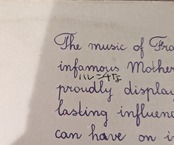 The music of Fra
infamous Mother
ハレンチな
proudly display
lasting influenc
can have on i